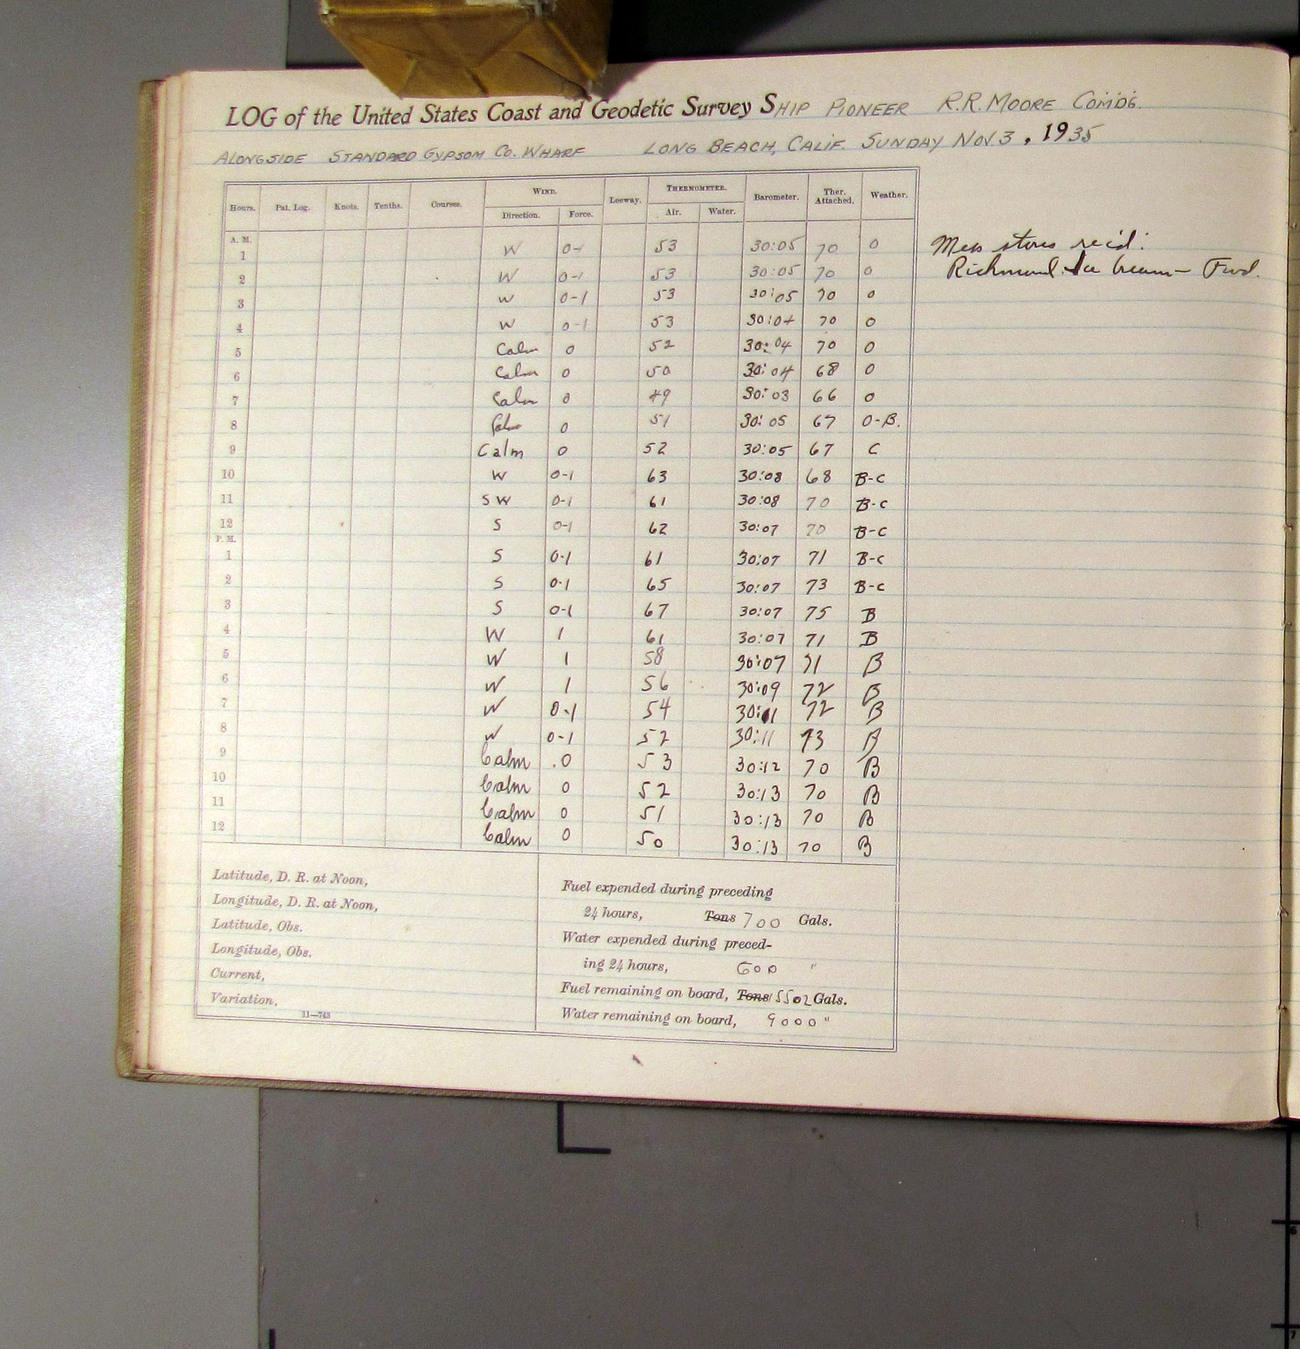 LOG of the United States Coast and Geodetic Survey SHIP PIONEER R.R. MOORE COMDG.
ALONGSIDE STANDARD GYPSOM CO. WHARF LONG BEACH, CALIF. SUNDAY NOV. 3, 1935
WIND. THERMOMETER.
Hours. Pat. Log. Knots. Tenths. Courses. Direction. Force. Leeway. Air. Water. Barometer. Ther. Attached. Weather.
A. M.
1 W 0-1 53 30:05 70 0 Mess stores rec'd:
2 W 0-1 53 30:05 70 0 Richmond Ice Cream - Fwd.
3 W 0-1 53 30:05 70 0
4 W 0-1 53 30:04 70 0
5 Calm 0 52 30:04 70 0
6 Calm 0 50 30:04 68 0
7 Calm 0 49 30:03 66 0
8 Calm 0 51 30:05 67 0-B.
9 Calm 0 52 30:05 67 C
10 W 0-1 63 30:08 68 B-C
11 SW 0-1 61 30:08 70 B-C
12 S 0-1 62 30:07 70 B-C
P. M.
1 S 0-1 61 30:07 71 B-C
2 S 0-1 65 30:07 73 B-C
3 S 0-1 67 30:07 75 B
4 W 1 61 30:07 71 B
5 W 1 58 30:07 71 B
6 W 1 56 30:09 72 B
7 W 0-1 54 30:11 72 B
8 W 0-1 52 30:11 73 B
9 Calm .0 53 30:12 70 B
10 Calm 0 52 30:13 70 B
11 Calm 0 51 30:13 70 B
12 Calm 0 50 30:13 70 B
Latitude, D. R. at Noon,
Longitude, D. R. at Noon,
Latitude, Obs.
Longitude, Obs.
Current,
Variation,
11—743
Fuel expended during preceding
24 hours, Tons 700 Gals.
Water expended during preced-
ing 24 hours, 600 "
Fuel remaining on board, Tons 15502 Gals.
Water remaining on board, 9000 "
6
7